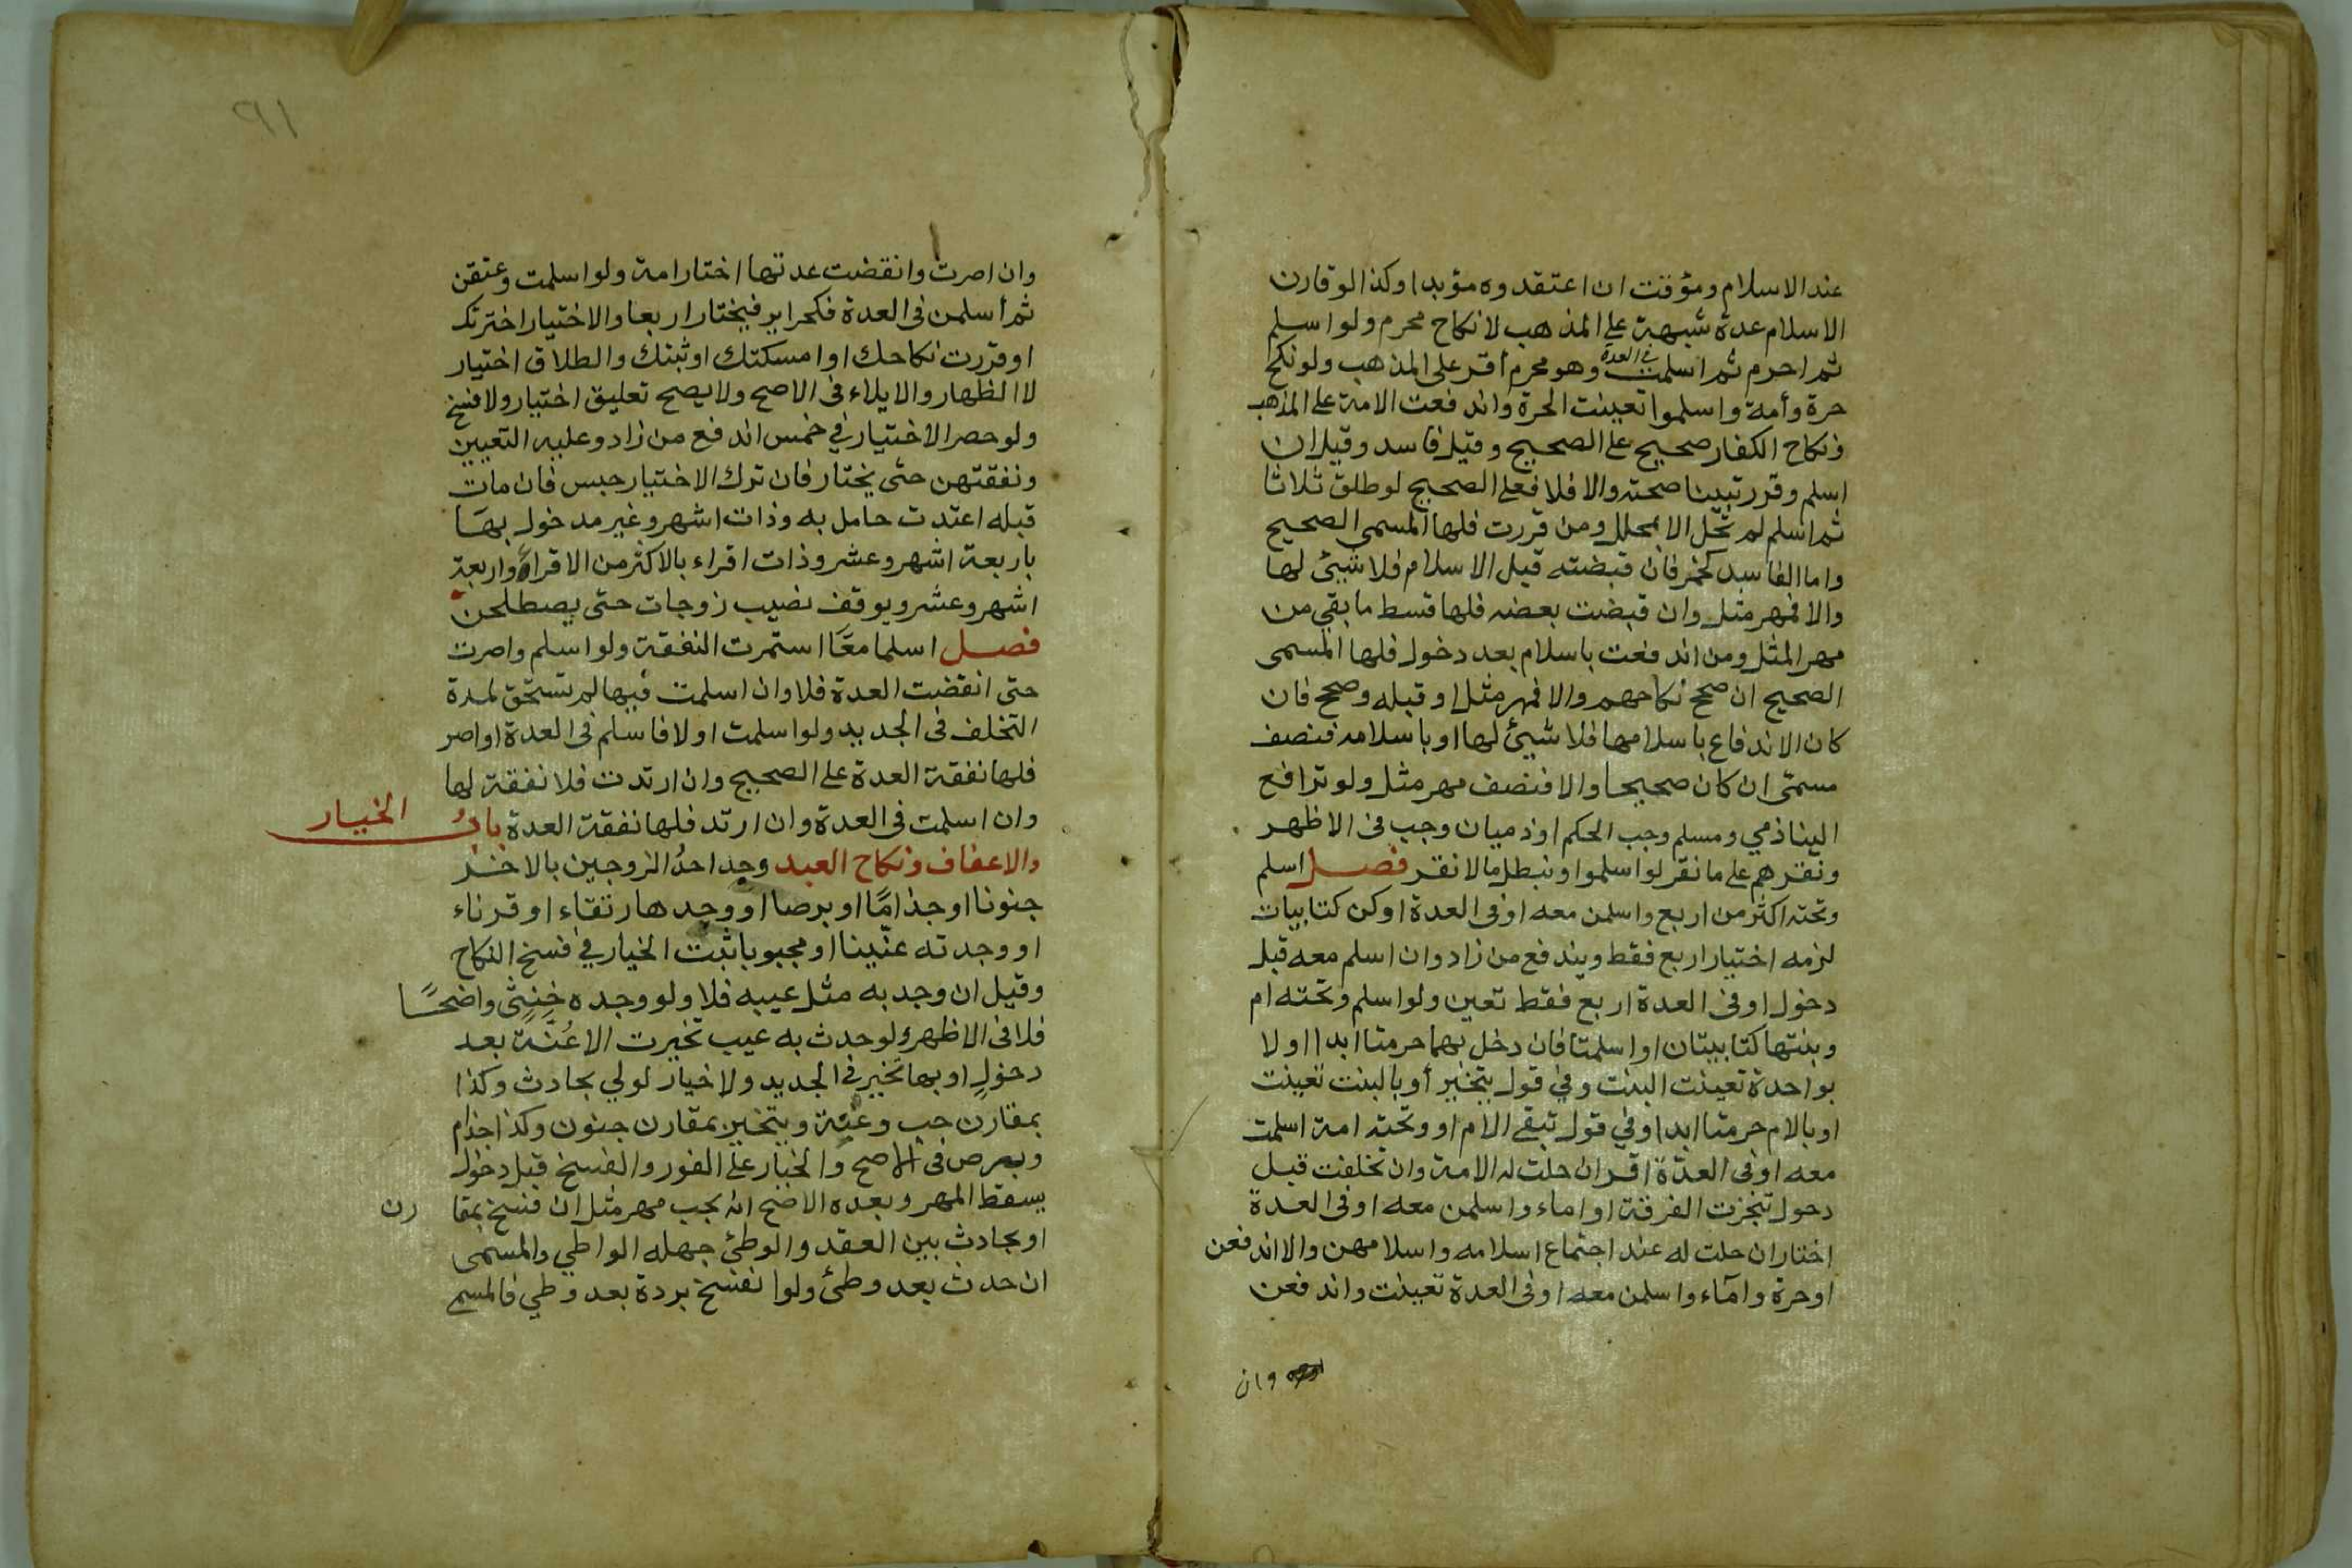 عند الاسلام ومؤقت ان اعتقدوه مؤبدا وكذا لو قارن
الاسلام عدة شبهة على المذهب لا نكاح محرم ولو اسلم
ثم احرم ثم اسلمت في العدة وهو محرم أقر على المذهب ولو نكح
حرة وأمة واسلموا تعينت الحرة واندفعت الامة على المذهب
ونكاح الكفار صحيح على الصحيح وقيل فاسد وقيل ان
اسلم وقرر تبينا صحته والا فلا فعلى الصحيح لو طلق ثلاثا
ثم اسلم لم تحل الا بمحلل ومن قررت فلها المسمى الصحيح
واما الفاسد كخمر فان قبضته قبل الاسلام فلا شيئ لها
والا فمهر مثل وان قبضت بعضه فلها قسط ما بقي من
مهر المثل ومن اندفعت باسلام بعد دخول فلها المسمى
الصحيح ان صحح نكاحهم والا فمهر مثل او قبله وصحح فان
كان الاندفاع باسلامها فلا شيئ لها او باسلامه فنصف
مسمى ان كان صحيحا والا فنصف مهر مثل ولو ترافع
الينا ذمي ومسلم وجب الحكم او ذميان وجب فى الاظهر
ونقرهم على ما نقر لو اسلموا ونبطل ما لا نقر فصل اسلم
وتحته اكثر من اربع واسلمن معه او فى العدة او كن كتابيات
لزمه اختيار اربع فقط ويندفع من زاد وان اسلم معه قبل
دخول او فى العدة اربع فقط تعين ولو اسلم وتحته ام
وبنتها كتابيتان او اسلمتا فان دخل بهما حرمتا ابدا او لا
بواحدة تعينت البنت وفي قول يتخير أو بالبنت تعينت
او بالام حرمتا ابدا وفي قول تبقى الام او وتحته امة اسلمت
معه او فى العدة اقر ان حلت له الامة وان تخلفت قبل
دخول تنجزت الفرقة او اماء واسلمن معه او فى العدة
اختار ان حلت له عند اجتماع اسلامه واسلامهن والا اندفعن
او حرة وامآء واسلمن معه او فى العدة تعينت واندفعن
وان
٩١
وان اصرت وانقضت عدتها اختار امة ولو اسلمت وعتقن
ثم أسلمن فى العدة فكحراير فيختار اربعا والاختيار اخترتك
او قررت نكاحك او امسكتك او ثبتك والطلاق اختيار
لا الظهار والايلاء فى الاصح ولا يصح تعليق اختيار ولا فسخ
ولو حصر الاختيار في خمس اندفع من زاد وعليه التعيين
ونفقتهن حتى يختار فان ترك الاختيار حبس فان مات
قبله اعتدت حامل به وذات اشهر وغير مدخول بها
باربعة اشهر وعشر وذات اقراء بالاكثر من الاقراء واربعة
اشهر وعشر ويوقف نصيب زوجات حتى يصطلحن
فصل اسلما معًا استمرت النفقة ولو اسلم واصرت
حتى انقضت العدة فلا وان اسلمت فيها لم تستحق لمدة
التخلف فى الجديد ولو اسلمت اولا فاسلم فى العدة او اصر
فلها نفقة العدة على الصحيح وان ارتدت فلا نفقة لها
وان اسلمت فى العدة وان ارتد فلها نفقة العدة باب الخيار
والاعفاف ونكاح العبد وجد احدُ الزوجين بالاخر
جنونا او جذامًا او برصا او وجدها رتقاء او قرناء
او وجدته عنّينا او مجبوبا ثبت الخيار في فسخ النكاح
وقيل ان وجد به مثل عيبه فلا ولو وجده خنثى واضحًا
فلا فى الاظهر ولو حدث به عيب تخيرت الا عُنَّة بعد
دخولٍ او بها تخير في الجديد ولا خيار لولي بحادث وكذا
بمقارن جب وعنة ويتخير بمقارن جنون وكذا جذام
وبرص فى الاصح والخيار على الفور والفسخ قبل دخول
يسقط المهر وبعده الاصح انه يجب مهر مثل ان فسخ بمقارن
او بحادث بين العقد والوطئ جهله الواطي والمسمى
ان حدث بعد وطئ ولو انفسخ بردة بعد وطي فالمسمى